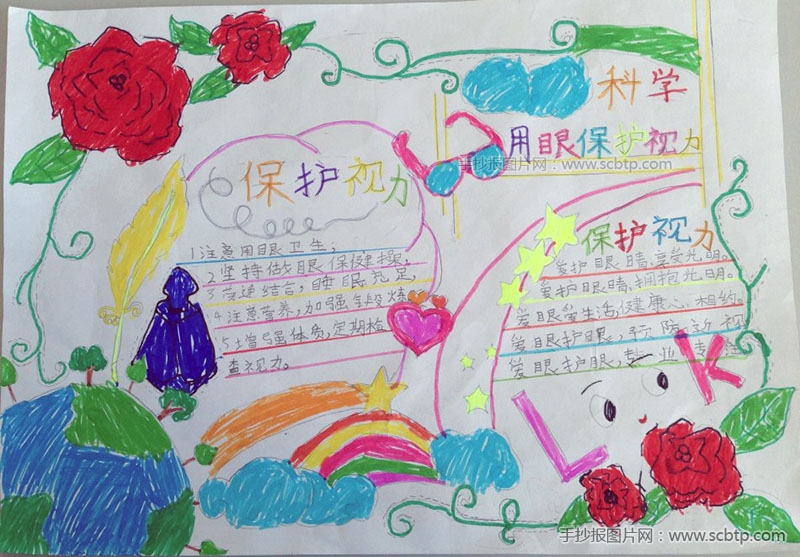 科学
用眼保护视力
手抄报图片网：www.scbtp.com
保护视力
1注意用眼卫生；
2坚持做眼保健操，
3劳逸结合，睡眠充足，
4注意营养，加强锻炼
5增强体质，定期检
查视力。
保护视力
爱护眼睛，享受光明。
爱护眼睛，拥抱光明。
爱眼爱生活，健康心相约。
爱眼护眼，预防近视
爱眼护眼，专业专注
LOOK
手抄报图片网：www.scbtp.com